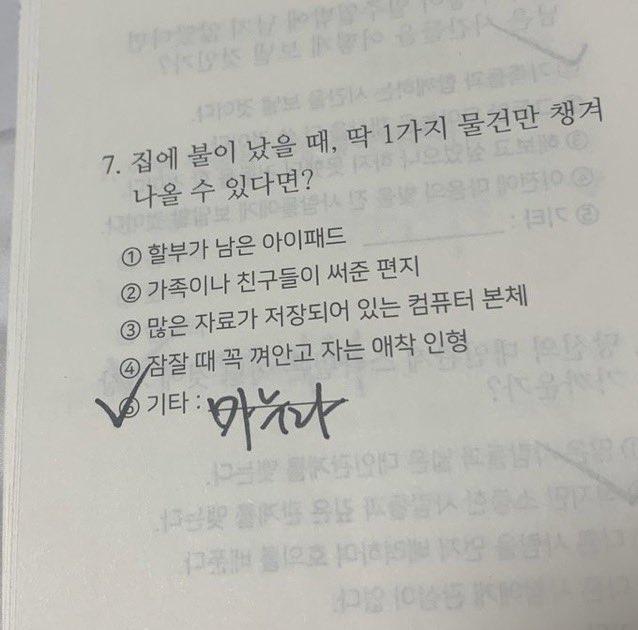 7. 집에 불이 났을 때, 딱 1가지 물건만 챙겨
나올 수 있다면?
① 할부가 남은 아이패드
② 가족이나 친구들이 써준 편지
③ 많은 자료가 저장되어 있는 컴퓨터 본체
④ 잠잘 때 꼭 껴안고 자는 애착 인형
⑤ 기타 : 마누라